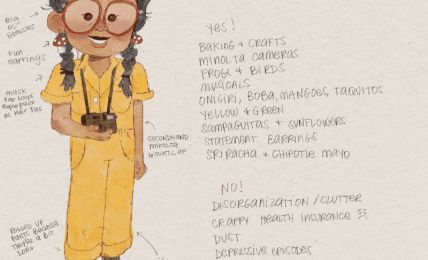 Big
Ol'
Glasses
Fun
earrings
mask
Ear Loops
Repurposed
as Hair Ties
SECONDHAND
MINOLTA
ROLLED UP
PANTS BECAUSE
THEY'RE A BIT
LONG
Yes!
BAKING + CRAFTS
MINOLTA CAMERAS
FROGS + BIRDS
MUSICALS
ONIGIRI, BOBA, MANGOES, TAQUITOS
YELLOW + GREEN
SAMPAGUITAS + SUNFLOWERS
STATEMENT EARRINGS
SRIRACHA + CHIPOTLE MAYO
NO!
DISORGANIZATION / CLUTTER
CRAPPY HEALTH INSURANCE
DUST
DEPRESSIVE EPISODES